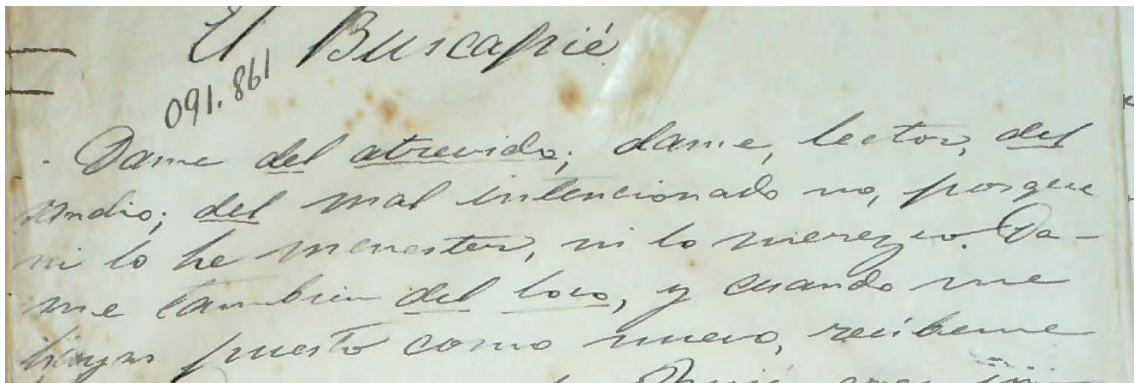 El Buscapié
091.861
Dame del atrevido; dame, lector, del
sandio; del mal intencionado no, porque
ni lo he menester, ni lo merezco. Da-
me tambien del loco, y cuando me
hayas puesto como nuevo, recíbeme